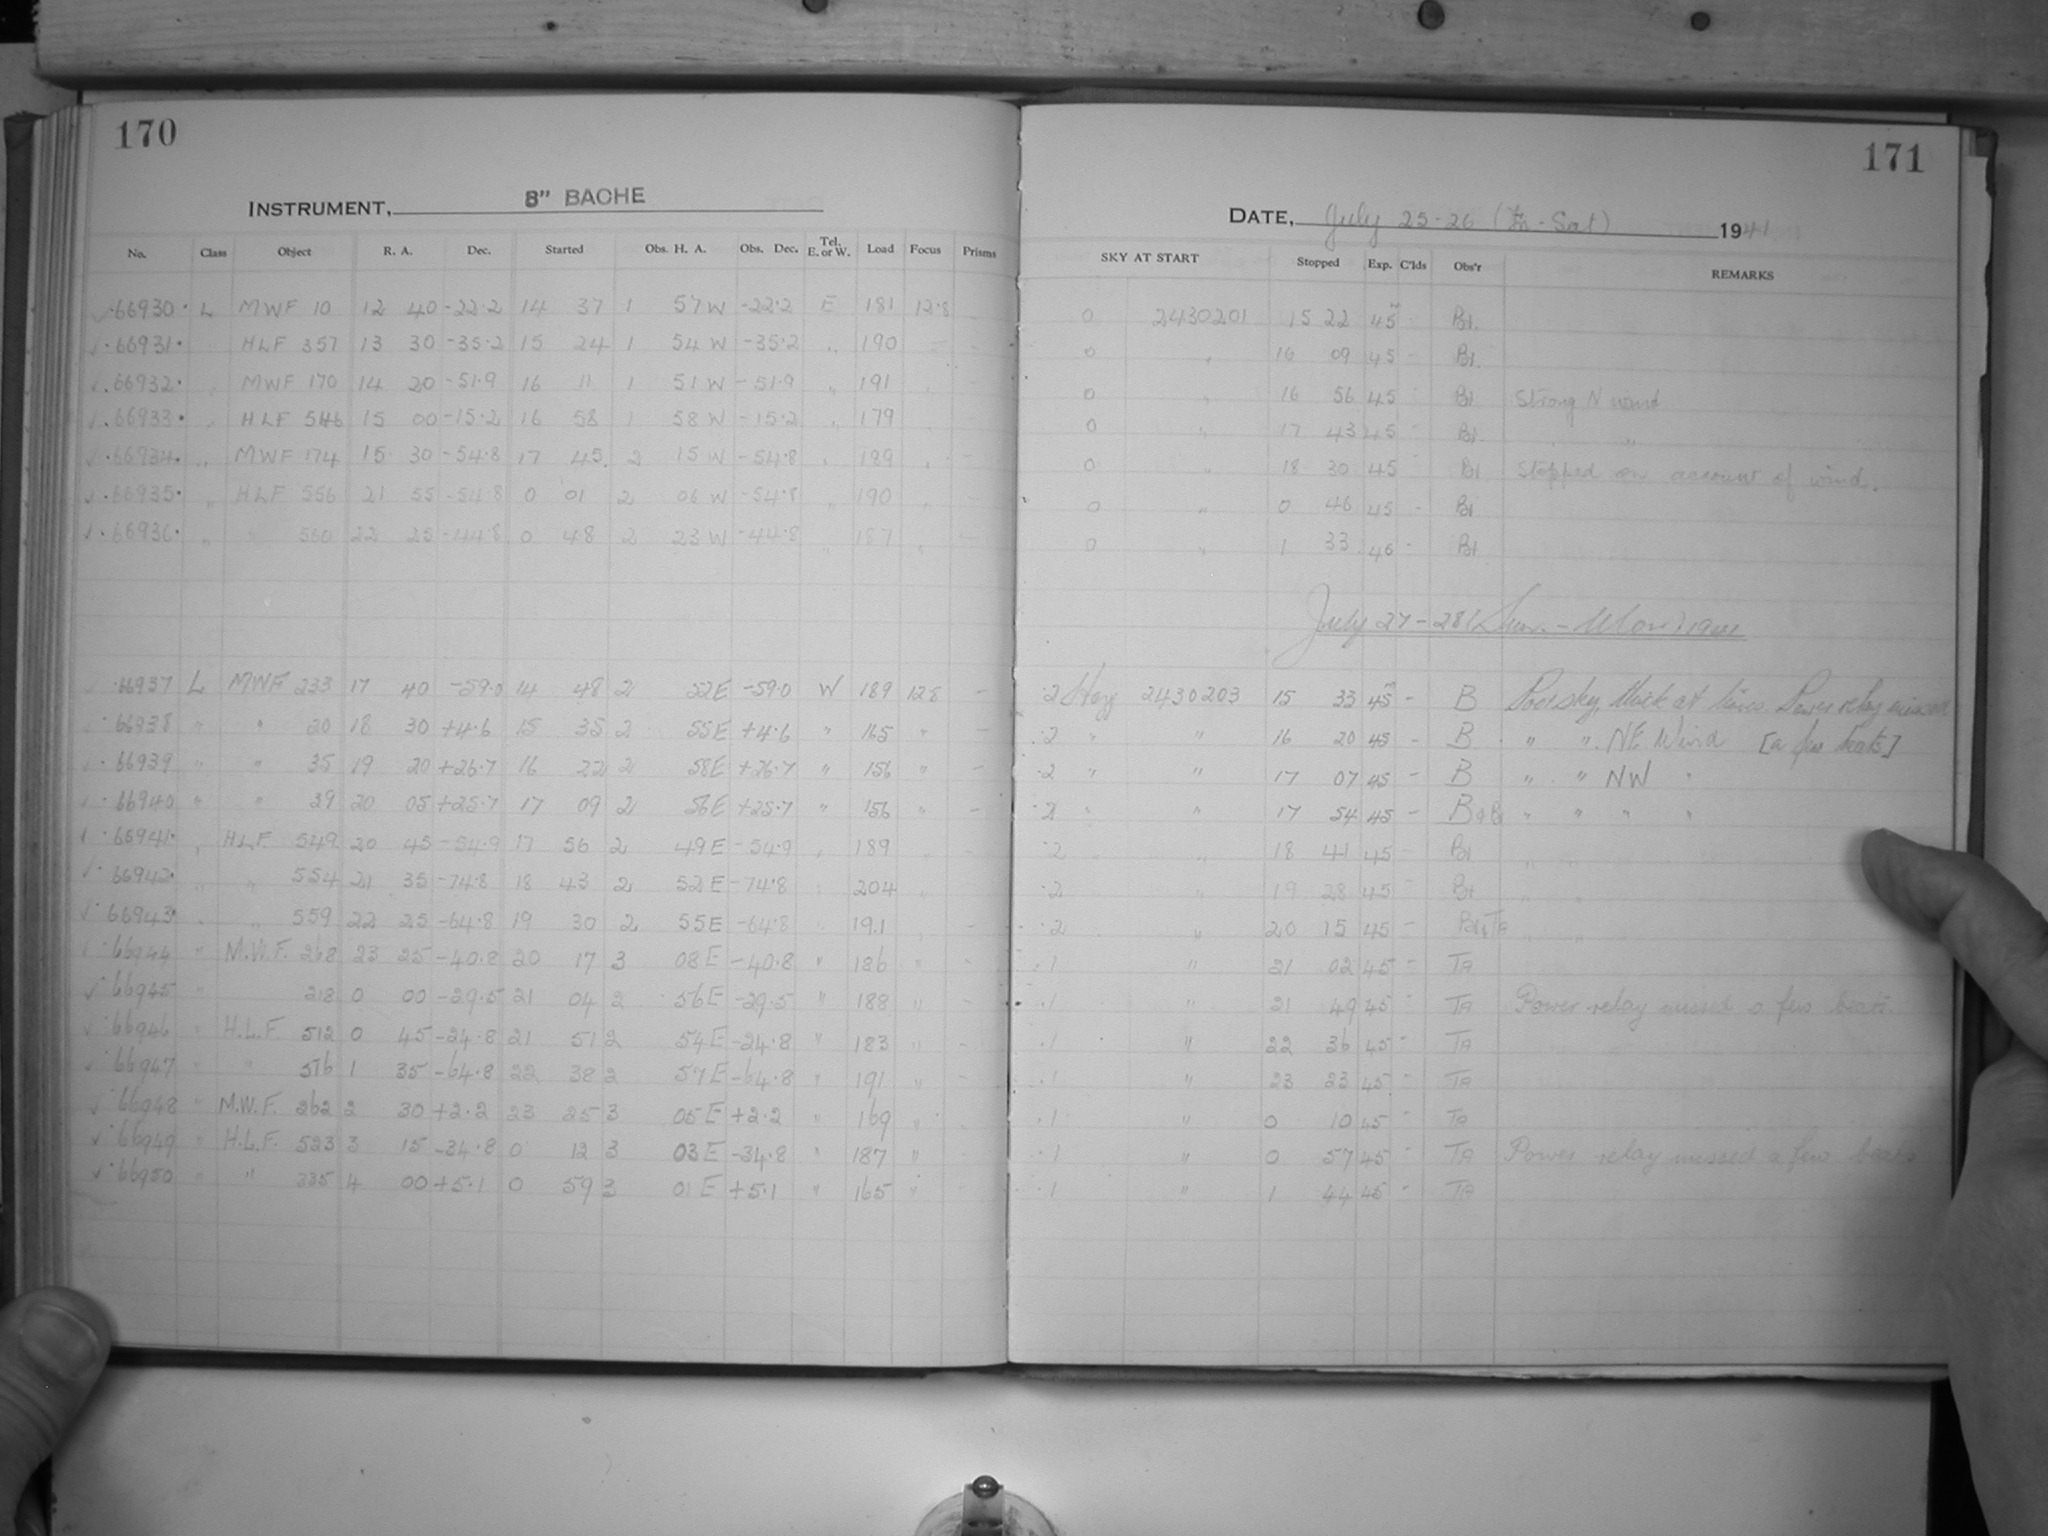 170
INSTRUMENT, 8" BACHE
No. Class Object R. A. Dec. Started Obs. H. A. Obs. Dec. Tel. E. or W. Load Focus Prisms
66930 L MWF 10 12 40 -22.2 14 37 1 57 W -22.2 E 181 12.8
66931 " HLF 357 13 30 -35.2 15 24 1 54 W -35.2 " 190 " -
66932 " MWF 170 14 20 -51.9 16 11 1 51 W -51.9 " 191 " -
66933 " HLF 546 15 00 -15.2 16 58 1 58 W -15.2 " 179 " -
66934 " MWF 174 15 30 -54.8 17 45 2 15 W -54.8 " 189 " -
66935 " HLF 556 21 55 -54.8 0 01 2 06 W -54.8 " 190 " -
66936 " " 560 22 25 -44.8 0 48 2 23 W -44.8 " 187 " -
66937 L MWF 233 17 40 -59.0 14 48 2 52 E -59.0 W 189 128 -
66938 " " 20 18 30 +4.6 15 35 2 55 E +4.6 " 165 " -
66939 " " 35 19 20 +26.7 16 22 2 58 E +26.7 " 156 " -
66940 " " 39 20 05 +25.7 17 09 2 56 E +25.7 " 156 " -
66941 " HLF 549 20 45 -54.9 17 56 2 49 E -54.9 " 189 " -
66942 " " 554 21 35 -74.8 18 43 2 52 E -74.8 " 204 " -
66943 " " 559 22 25 -64.8 19 30 2 55 E -64.8 " 191 " -
66944 " M.W.F. 268 23 25 -40.8 20 17 3 08 E -40.8 " 186 " -
66945 " 218 0 00 -29.5 21 04 2 56 E -29.5 " 188 " -
66946 " H.L.F 512 0 45 -24.8 21 51 2 54 E -24.8 " 183 " -
66947 " " 516 1 35 -64.8 22 38 2 57 E -64.8 " 191 " -
66948 " M.W.F. 262 2 30 +2.2 23 25 3 05 E +2.2 " 169 " -
66949 " H.L.F. 523 3 15 -34.8 0 12 3 03 E -34.8 " 187 " -
66950 " " 335 4 00 +5.1 0 59 3 01 E +5.1 " 165 " -
171
DATE, July 25-26 (Fri-Sat) 1941
SKY AT START Stopped Exp. C'lds Obs'r REMARKS
0 2430201 15 22 45 - Bl.
0 " 16 09 45 - Bl.
0 " 16 56 45 - Bl Strong N wind
0 " 17 43 45 - Bl. " "
0 " 18 30 45 - Bl Stopped on account of wind.
0 " 0 46 45 - Bl
0 " 1 33 45 - Bl
July 27-28 (Sun.-Mon) 1941
.2 Hazy 2430203 15 33 45 - B Poor sky, thick at times. Power relay missed
.2 " " 16 20 45 - B " " . NE Wind [a few beats]
.2 " " 17 07 45 - B " " NW "
.2 " " 17 54 45 - B & Bl " " " "
.2 " 18 41 45 - Bl " "
.2 " 19 28 45 - Bl " "
.2 " 20 15 45 - Bl & TA " "
.1 " 21 02 45 - TA
.1 " 21 49 45 - TA Power relay missed a few beats.
.1 " 22 36 45 - TA
.1 " 23 23 45 - TA
.1 " 0 10 45 - TA
.1 " 0 57 45 - TA Power relay missed a few beats
.1 " 1 44 45 - TA